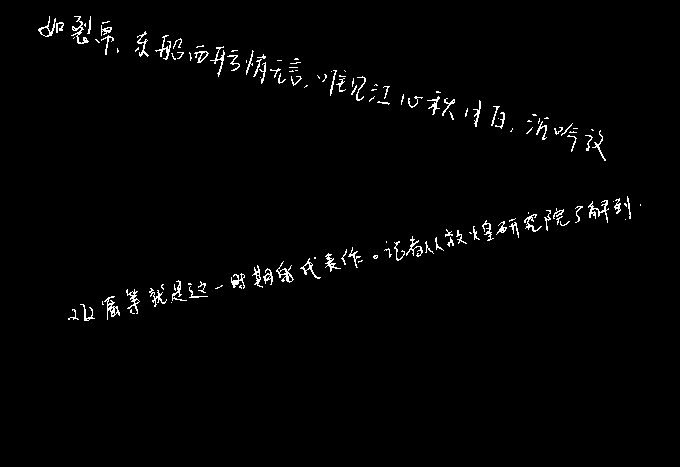 如裂帛，东船西舫悄无言，唯见江心秋月白，沉吟放
272窟等就是这一时期的代表作。记者从敦煌研究院了解到，